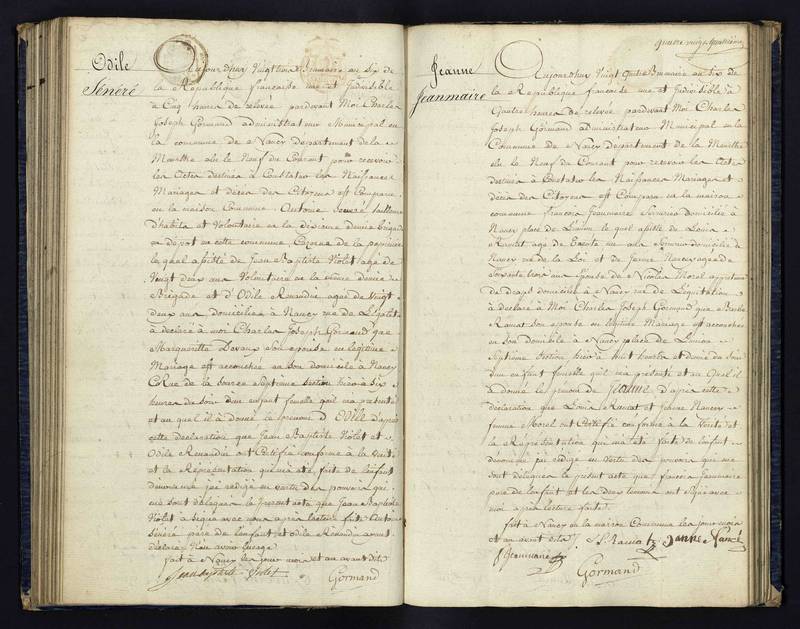 Odile
Sénéré
Aujourd'huy Vingt trois Brumaire an Six de
la Republique française une et Indivisible
à Cinq heures de relevée pardevant Moi Charles
Joseph Gormand administrateur Municipal en
la commune de Nancy Département de la
Meurthe élu le Neuf du Courant pour recevoir
les Actes destinés à Constater les Naissances
Mariages et décès des Citoyens est Comparu
en la maison Commune Antoine Sénéré tailleur
d'habits et Volontaire en la dixieme demie brigade
en dépot en cette commune Cazerne de la pepiniere
lequel assisté de Jean Baptiste Violet agé de
Vingt deux ans Volontaire en la même demie
Brigade et d'Odile Renaudin agée de Vingt
deux ans domiciliée à Nancy rue de
à déclaré à moi Charles Joseph Gormand que
Margueritte Devaux Son epouse en légitime
Mariage est accouchée en son domicile à Nancy
Rue de la Source Septieme Section hier à Six
heures du Soir d'un enfant femelle qu'il m'a présenté
et au quel il à donné le prenom d'Odile d'après
cette déclaration que Jean Baptiste Violet et
Odile Renaudin ont Certifié conforme à la Vérité
et la Représentation qui m'a été faite de l'enfant
dénommé j'ai rédigé en vertu des pouvoirs qui
me sont délégués le présent acte que Jean Baptiste
Violet à Signé avec nous après lecture faite Antoine
Sénéré pere de l'enfant et Odile Renaudin ayant
déclaré N'en avoir l'usage
fait à Nancy les jour mois et an avant dits
Jean baptiste Violet Gormand
quatre vingt quatrieme
Jeanne
Jeanmaire
Aujourd'huy Vingt quatre Brumaire an Six de
la Republique française une et Indivisible à
Quatre heures de relevée pardevant Moi Charles
Joseph Gormand administrateur Municipal en la
Commune de Nancy Département de la Meurthe
élu le Neuf du Courant pour recevoir les Actes
destinés à Constater les Naissances Mariages et
décès des Citoyens est Comparu en la maison
commune françois Jeanmaire Serrurier domicilié à
Nancy place de l'union lequel assisté de Louis
Ramat agé de trente un ans Serrurier domicilié à
Nancy rue de la Loi et de Janne Nancey agée de
Soixante trois ans épouse de Nicolas Morel appreteur
de draps domiciliés à Nancy rue de
à déclaré à Moi Charles Joseph Gormand que Barbe
Ramat Son epouse en légitime Mariage est accouchée
en Son Domicile à Nancy place de l'union
Septieme Section hier à huit heures et demie du Soir
d'un enfant femelle qu'il m'a présenté et au Quel il
à donné le prenom de Jeanne d'après cette
déclaration que Louis Ramat et Jeanne Nancey
femme Morel ont Certifié conforme à la Vérité et
la Représentation qui m'a été faite de l'enfant
dénommé j'ai rédigé en vertu des pouvoirs qui me
sont délégués le présent acte que françois Jeanmaire
pere de l'enfant et les deux temoins ont signé avec
moi après lecture faite
fait à Nancy en la maison Commune les jour mois
et an avant dits
Jeanmaire
Gormand